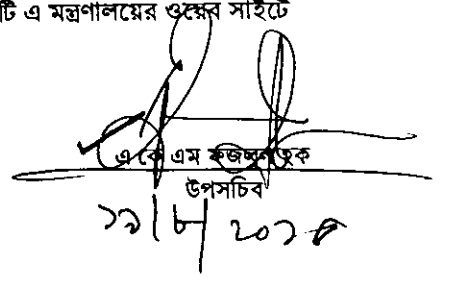 টি এ মন্ত্রণালয়ের ওয়েব সাইটে
এ কে এম ফজলুল হক
উপসচিব
১৯|৮|২০১৮